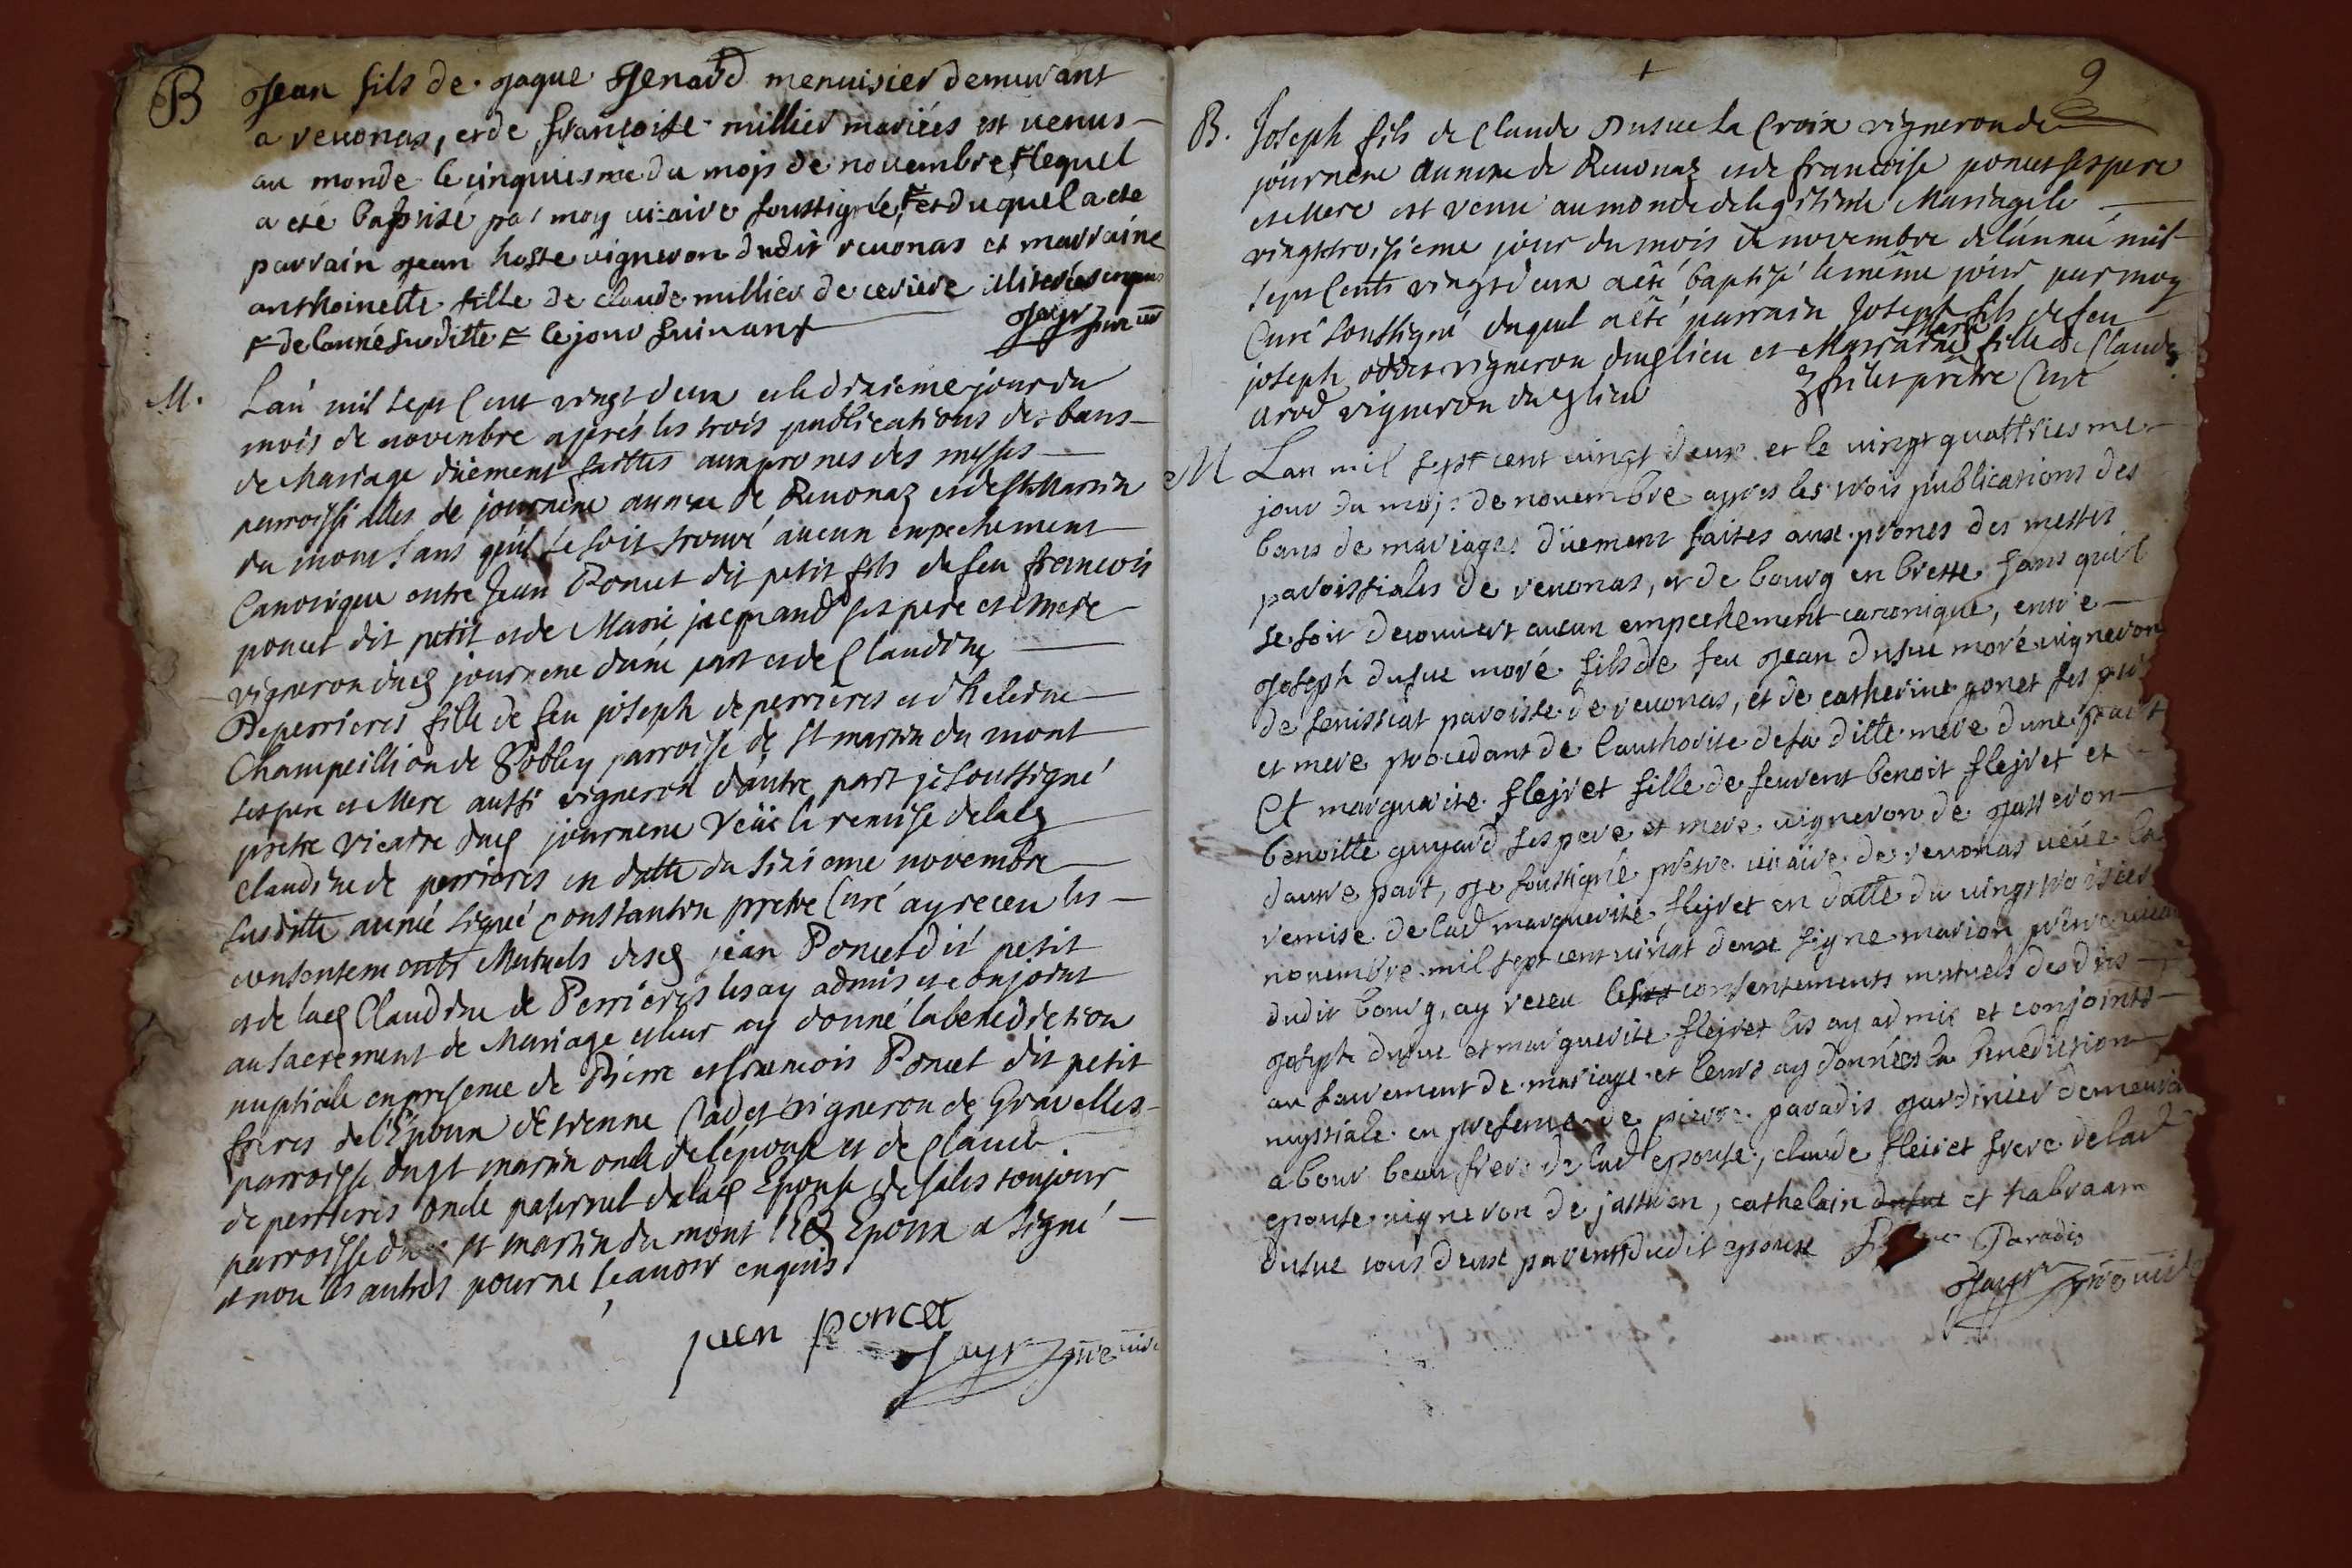 B Jean fils de jaque Jenard menuisier demeurant
a revonas, et de francoise millier mariées est venus
au monde le cinquiesme du mois de novembre F lequel
a eté baptisé par moy vicaire soussigné, F et duquel a eté
parrain jean hoste vigneron dudit revonas et marraine
anthoinette fille de claude millier de ceriere illiterés enquis
F de lanné susditte F le jour suivant Jayr
M. Lan mil sept Cent vingt deux et le dixieme jour du
mois de novembre aprés les trois publications des bans
de Mariage düement faittes aux prones des messes
parroissialles de journene annexe de Revonaz et de St Martin
du mont sans qu'il se soit trouvé aucun empechement
Canonique entre Jean Poncet dit petit fils de feu francois
poncet dit petit et de Marie jacquand ses pere et mere
vigneron dud journene d'une part et de Claudine
Deperrieres fille de feu joseph de perrieres et d'heleine
Champeillion de Soblay parroisse de St martin du mont
ses pere et Mere aussi vigneron d'autre part je soussigné
pretre vicaire dud journene Veüe la remise de lad
claudine de perrieres en datte du sixieme novembre
susditte année signé constantin pretre Curé ay receu les
consentements Mutuels desd jean Poncet dit petit
et de lad Claudine de Perrieres les ay admis et conjoint
au sacrement de Mariage et leur ay donné la benediction
nuptiale en presence de Pierre et francois Poncet dit petit
freres de l'Epoux d'Etienne Cadet vigneron de Gravelles
parroisse dud St martin oncle de l'épouse et de Claude
de perrieres oncle paternel de lad Epouse de sales toujour
parroisse St martin du mont led Epoux a signé
et non les autres pour ne sçavoir enquis.
juen poncet
Jayr ptre vic
+ 9
B. Joseph fils de Claude Dusue la Croix vigneron de
journene annexe de Revonaz et de francoise poncet ses pere
et Mere est venu au monde de legitime Mariage le
vingttroisieme jour du mois de novembre de l'année mil
sept Cents vingt deux a été baptisé le même jour par moy
Curé soussigné duquel a été parrain Joseph fils de feu
joseph oddet vigneron dud lieu et Marraine Marie fille de Claude
arod vigneron dud lieu pretre Curé
M Lan mil sept cent vingt deux et le vingt quattriesme
jour du mois de novembre apres les trois publications des
bans de mariages düement faites aux prones des messes
paroissiales de revonas, et de bourg en bresse sans qu'il
se soit decouvert aucun empechement canonique, entre
joseph dusue moré fils de feu jean dusue moré vigneron
de senissiat paroisse de revonas, et de catherine gonet ses pere
et mere procedant de l'authorite de sa ditte mere d'une part
et marguerite flejret fille de feuvent benoit flejret et
benoitte guyard ses pere et mere vigneron de jasseron
dautre part, je soussigné prétre vicaire de revonas veüe la
remise de lad marguerite flejret en datte du vingt troisies
novembre mil sept cent vingt deux signe marion prétre vicair
dudit bourg, ay receu les consentements mutuels desdits
joseph dusue et marguerite flejret les ay admis et conjoints
au sacrement de mariage et leurs ay données la benediction
nuptiale en presence de pierre paradis jardinier demeura
a bour beau frere de lad epouse, claude fleiret frere de lad
epouse vigneron de jasseron, cathelain dusue et habraam
dusue tous deux parents dudit epoux Paradis
Jayr ptre vic